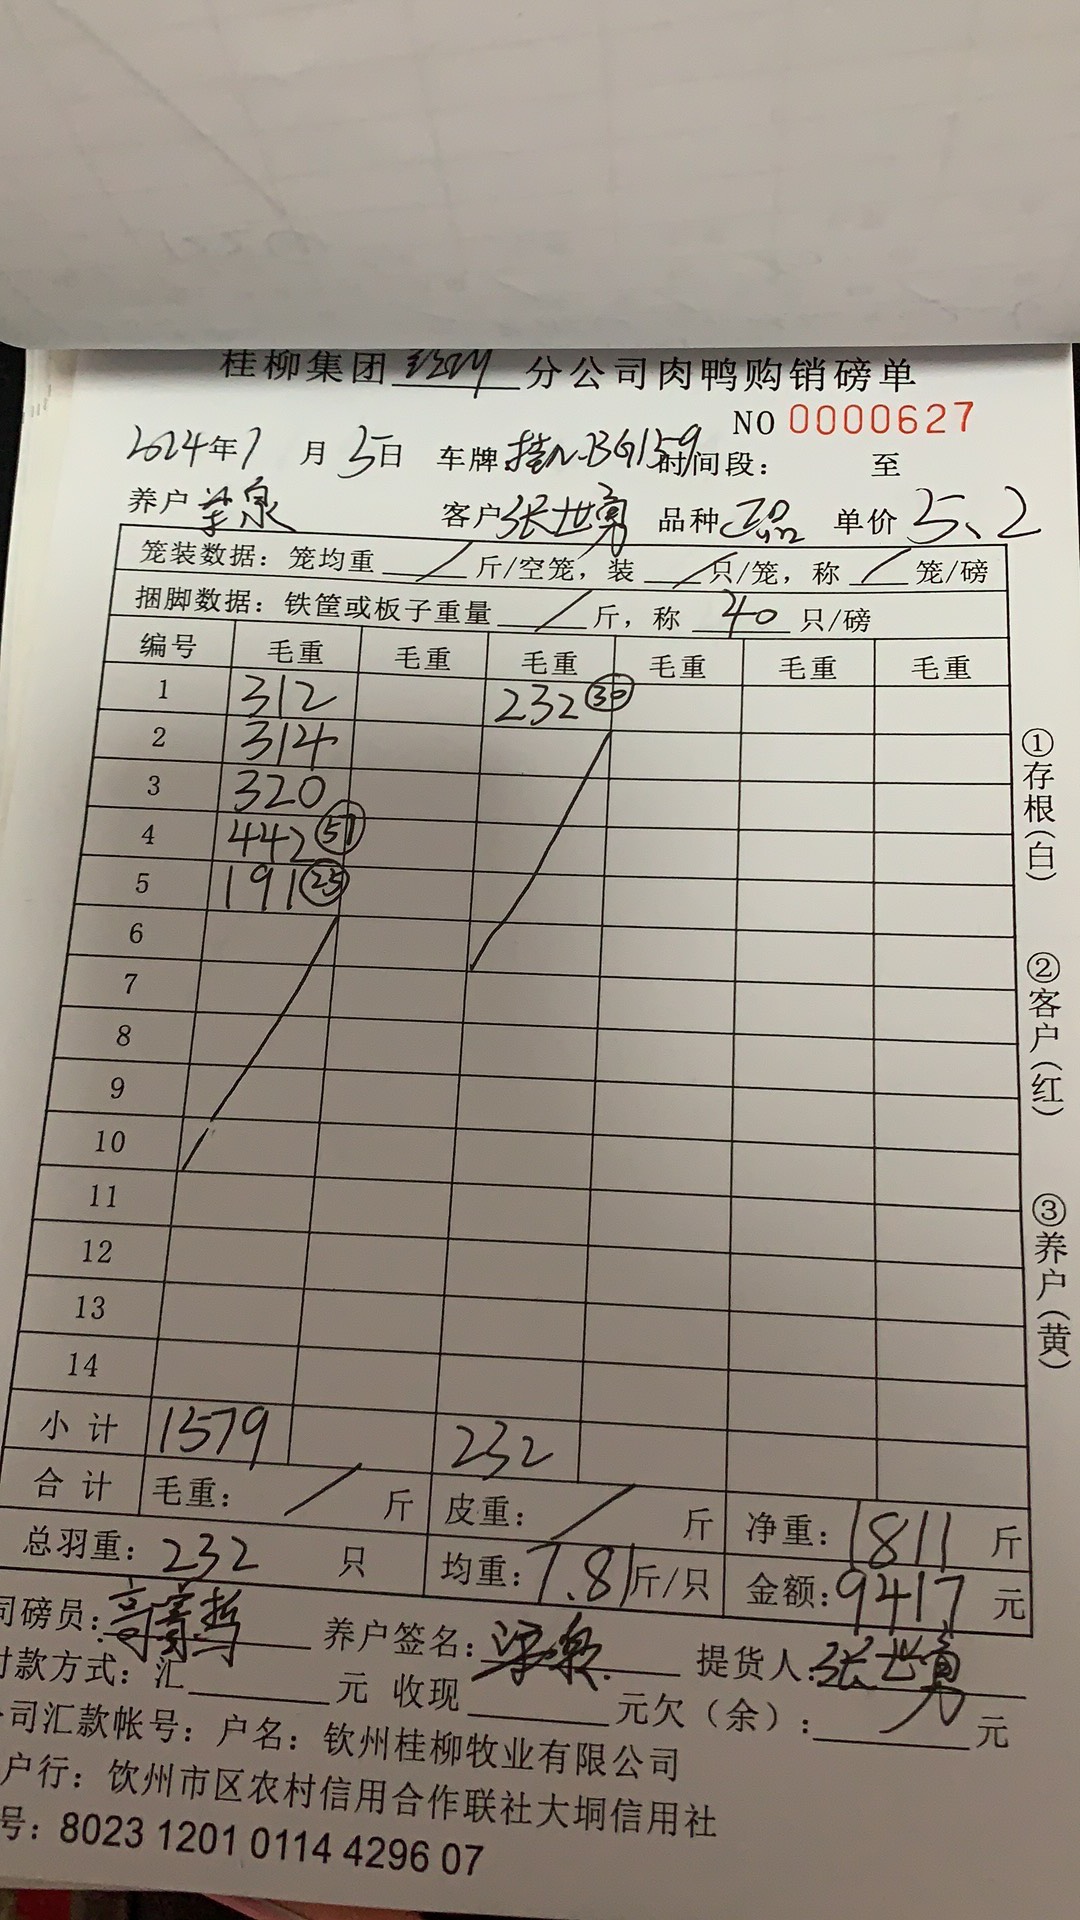 桂柳集团 分公司肉鸭购销磅单
NO 0000627
2024年7月5日 车牌:桂N·BG159 时间段: 至
养户 泉 客户 张世勇 品种 单价 5.2
笼装数据：笼均重 / 斤/空笼，装 / 只/笼，称 / 笼/磅
捆脚数据：铁筐或板子重量 / 斤，称 40 只/磅
编号 毛重 毛重 毛重 毛重 毛重 毛重
1 312 232 30
2 314
3 320
4 442 57
5 191 25
6
7
8
9
10
11
12
13
14
小计 1579 232
合计 毛重： / 斤 皮重： / 斤 净重：1811 斤
总羽重：232 只 均重：7.81 斤/只 金额：9417 元
司磅员： 养户签名： 提货人：张世勇
付款方式：汇 元 收现 元欠（余）： 元
司汇款帐号：户名：钦州桂柳牧业有限公司
户行：钦州市区农村信用合作联社大垌信用社
号：8023 1201 0114 4296 07
①存根（白）
②客户（红）
③养户（黄）